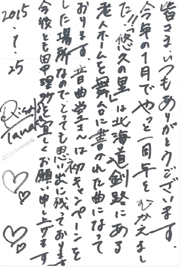 皆さま、いつもありがとうございます。
今年の1月でやっと一周年をむかえまし
た!!"悠久の里"は北海道釧路にある
老人ホームを舞台に書かれた曲になって
おります。音曲堂さんは初キャンペーンを
した場所なのでとっても思い出に残っております
今後とも田中理紗を宜しくお願い申し上げます
2015.1.25
Risa
Tanaka